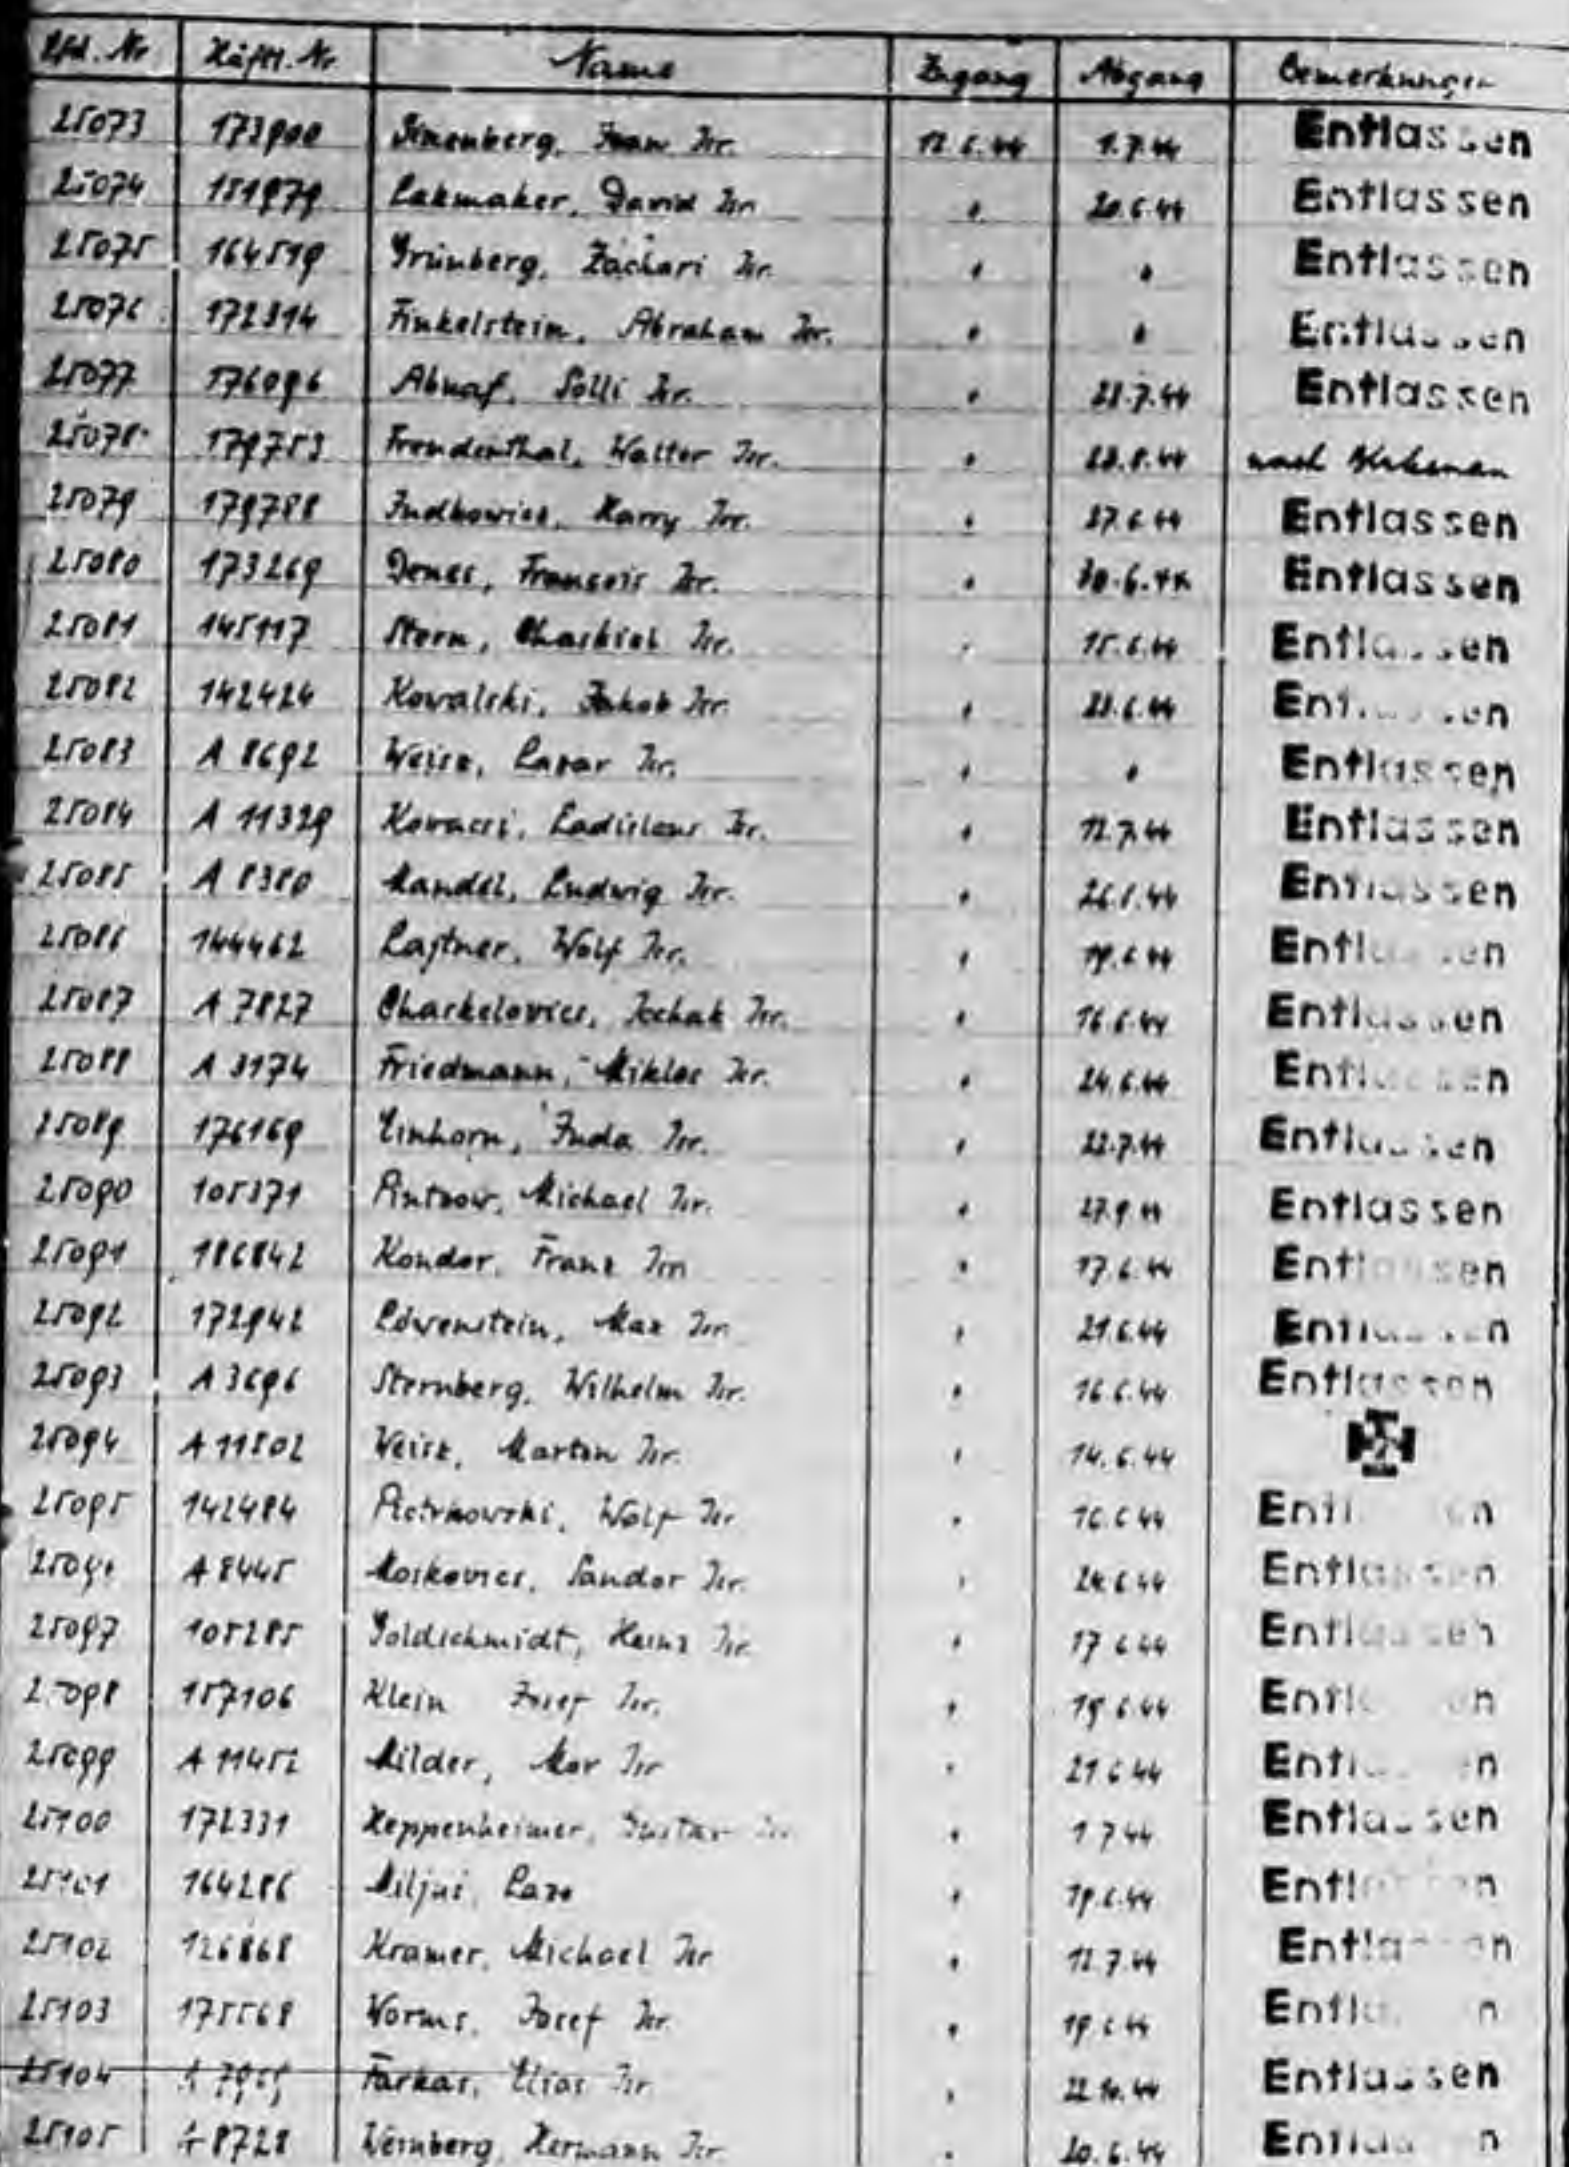 Lfd. Nr Häftl. Nr Name Zugang Abgang Bemerkungen
25073 173900 Isr. 12.6.44 1.7.44 Entlassen
25074 151979 Lakmaker, David Isr. " 20.6.44 Entlassen
25075 164519 Grünberg, Zachari Isr. " " Entlassen
25076 172314 Finkelstein, Abraham Isr. " " Entlassen
25077 176096 Abuaf, Solli Isr. " 28.7.44 Entlassen
25078 179753 Freudenthal, Walter Isr. " 23.8.44 nach Birkenau
25079 179788 Judkowicz, Harry Isr. " 27.6.44 Entlassen
25080 173269 Denes, Francois Isr. " 30.6.44 Entlassen
25081 145117 Stern, Chaskiel Isr. " 15.6.44 Entlassen
25082 142424 Kowalski, Jakob Isr. " 23.6.44 Entlassen
25083 A 8692 Weisz, Lazar Isr. " " Entlassen
25084 A 11329 Kovacsi, Ladislaus Isr. " 12.7.44 Entlassen
25085 A 8380 Mandel, Ludwig Isr. " 26.8.44 Entlassen
25086 144462 Lajtner, Wolf Isr. " 19.6.44 Entlassen
25087 A 7827 Charkelovics, Isr. " 16.6.44 Entlassen
25088 A 3174 Friedmann, Miklos Isr. " 24.6.44 Entlassen
25089 176169 Einhorn, Juda Isr. " 22.7.44 Entlassen
25090 105371 Michael Isr. " 27.9.44 Entlassen
25091 186842 Kondor, Franz Isr. " 17.6.44 Entlassen
25092 172942 Löwenstein, Max Isr. " 21.6.44 Entlassen
25093 A 3696 Sternberg, Wilhelm Isr. " 16.6.44 Entlassen
25094 A 11802 Weisz, Marton Isr. " 14.6.44
25095 142484 Piotrkowski, Wolf Isr. " 16.6.44 Entlassen
25096 A 8445 Moskovics, Sandor Isr. " 24.6.44 Entlassen
25097 105285 Goldschmidt, Heinz Isr. " 17.6.44 Entlassen
25098 157106 Klein Josef Isr. " 19.6.44 Entlassen
25099 A 11452 Milder, Mor Isr. " 21.6.44 Entlassen
25100 172331 Heppenheimer, Gustav Isr. " 1.7.44 Entlassen
25101 164286 Miljus, Lazo " 19.6.44 Entlassen
25102 126868 Kramer, Michael Isr. " 12.7.44 Entlassen
25103 175568 Worms, Josef Isr. " 19.6.44 Entlassen
25104 Farkas, Elias Isr. " 22.10.44 Entlassen
25105 A 8728 Weinberg, Hermann Isr. " 20.6.44 Entlassen